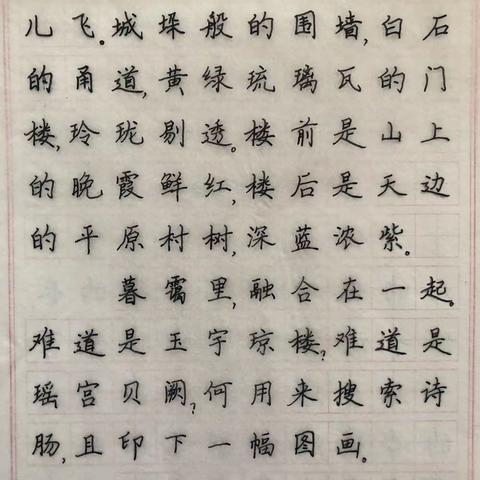 儿飞。城垛般的围墙,白石
的甬道,黄绿琉璃瓦的门
楼,玲珑剔透。楼前是山上
的晚霞鲜红,楼后是天边
的平原村树,深蓝浓紫。
暮霭里,融合在一起。
难道是玉宇琼楼?难道是
瑶宫贝阙?何用来搜索诗
肠,且印下一幅图画。